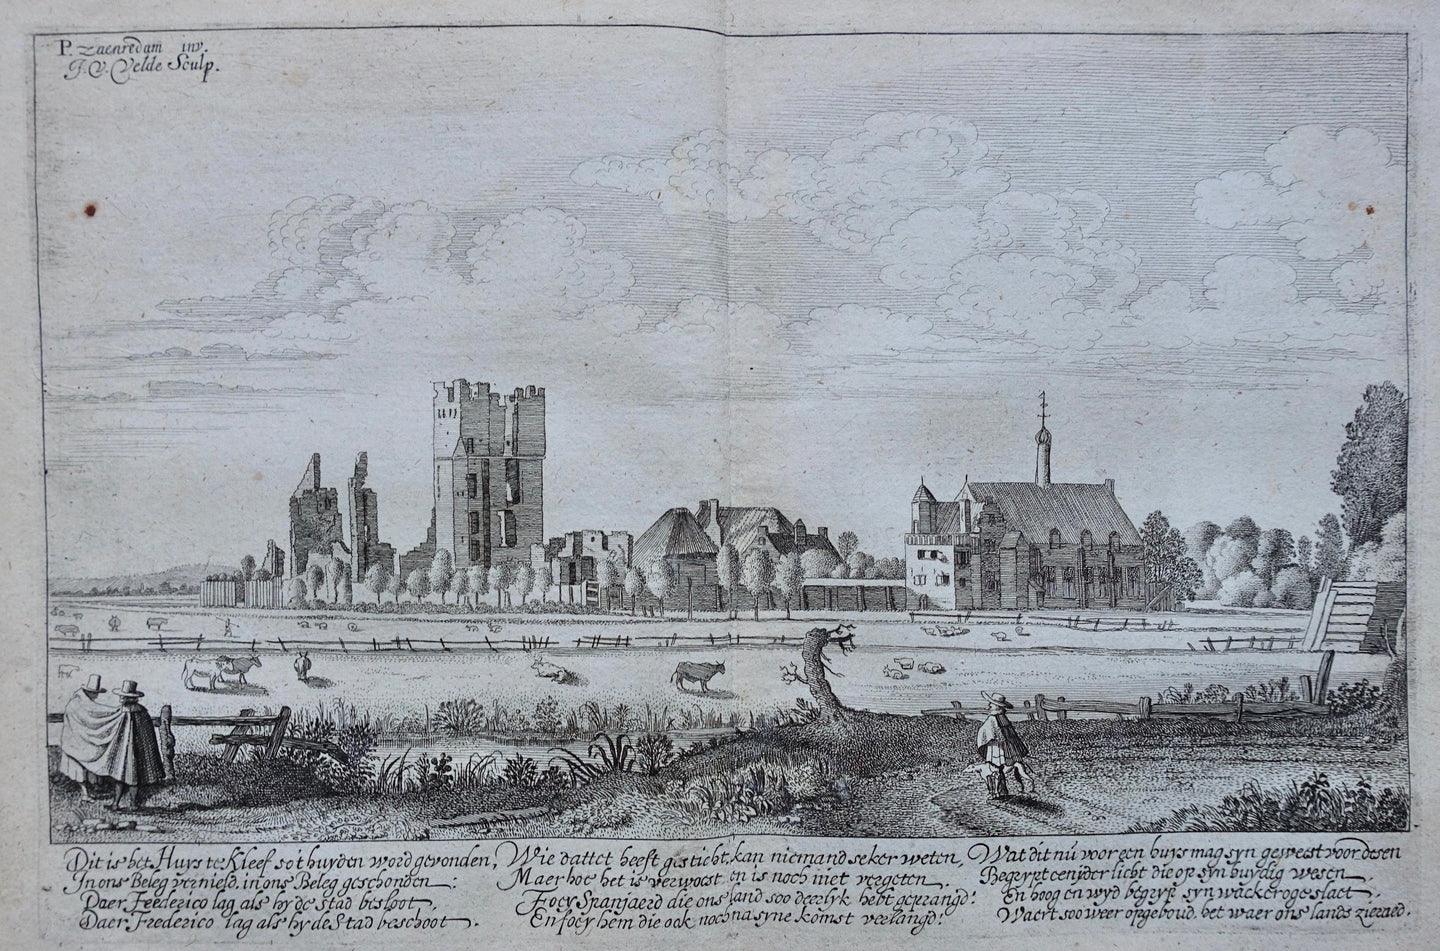 P. Zaenredam inv.
J. V. Velde Sculp.
Dit is het Huys te Kleef so't huyden word gevonden,
In ons Beleg vernield, in ons Beleg geschonden:
Daer Federico lag als hy de Stad besloot,
Daer Frederico lag als hy de Stad beschoot.
Wie dattet heeft gesticht, kan niemand seker weten,
Maer hoe het is verwoest en is noch niet vergeten.
Foey Spanjaerd die ons land soo deerlyk hebt geprangd!
En foey hem die ook noch na syne komst verlangd!
Wat dit nu voor een huys mag syn geweest voor desen
Begrypt een ijder licht die op syn huydig wesen
En hoog en wyd begryp syn wackeroge slaet
Waert soo weer opgeboud, het waer ons lands zieraed.